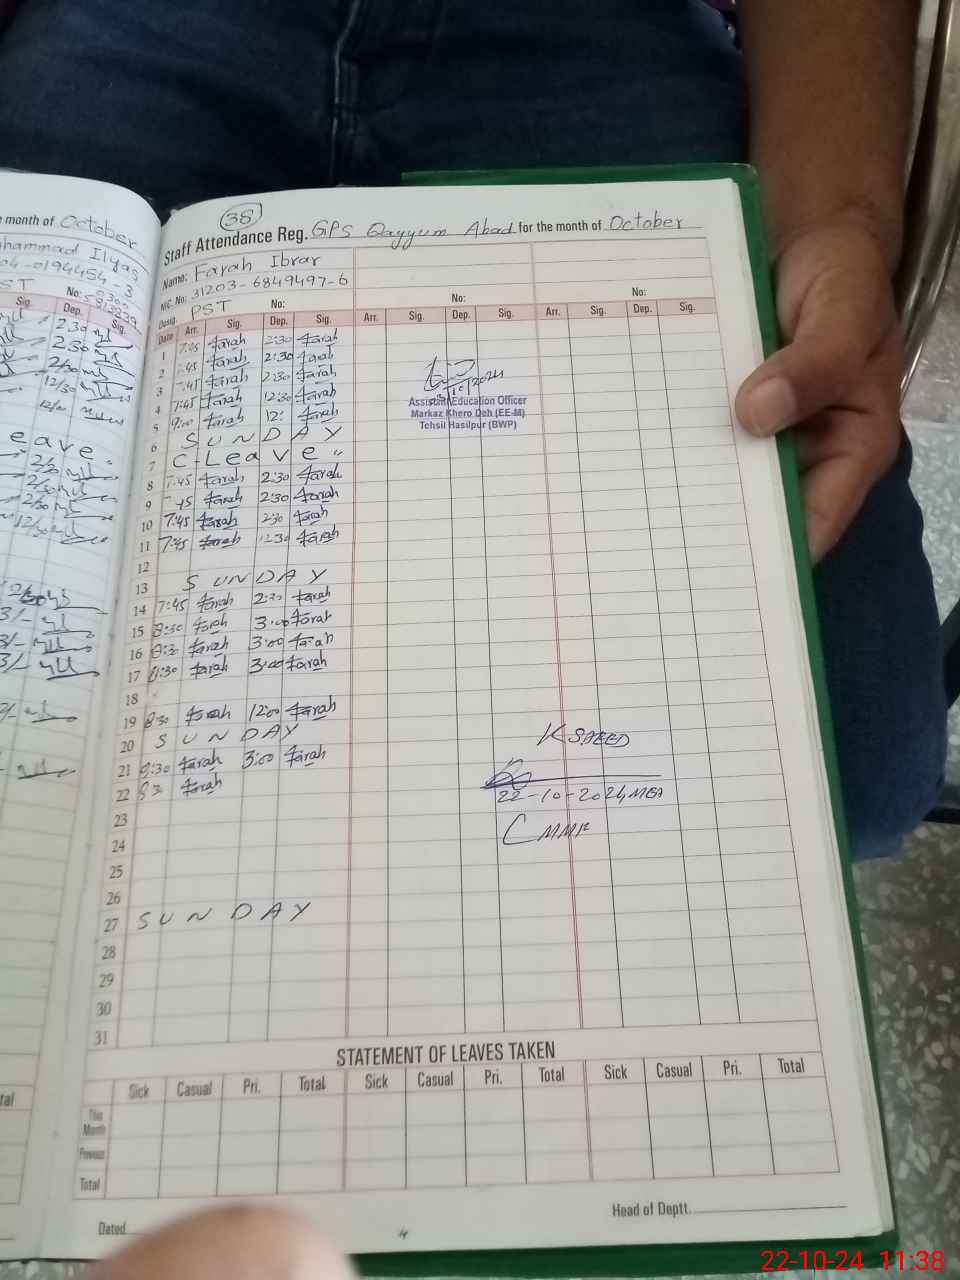 month of October
Muhammad Ilyas
04-0194454-3
No:
Sig. Dep. Sig.
2.30
2.30
2/30
12/30
12/00
eave "
2/30
2/30
2/30
12/30
3/-
3/-
3/-
38
Staff Attendance Reg. GPS Qayyum Abad for the month of October
Name: Farah Ibrar
NIC. No. 31203-6849497-6
Desig. PST No: No: No:
Date Arr. Sig. Dep. Sig. Arr. Sig. Dep. Sig. Arr. Sig. Dep. Sig.
1 7:45 Farah 2:30 Farah
2 :45 Farah 2:30 Farah
3 7:45 Farah 2:30 Farah
4 7:45 Farah 12:30 Farah
5 9:00 Farah 12: Farah
6 SUNDAY
7 C-Leave "
8 7:45 Farah 2:30 Farah
9 :45 Farah 2:30 Farah
10 7:45 Farah 2:30 Farah
11 7:45 Farah 12:30 Farah
12
13 SUNDAY
14 7:45 Farah 2:30 Farah
15 8:30 Farah 3:00 Farah
16 8:30 Farah 3:00 Farah
17 8:30 Farah 3:00 Farah
18
19 8:30 Farah 12:00 Farah
20 SUNDAY
21 8:30 Farah 3:00 Farah
22 8:30 Farah
23
24
25
26
27 SUNDAY
28
29
30
31
Assistant Education Officer
Markaz Khero Deh (EE-M)
Tehsil Hasilpur (BWP)
K SAEED
22-10-2024 MEA
STATEMENT OF LEAVES TAKEN
Sick Casual Pri. Total Sick Casual Pri. Total Sick Casual Pri. Total
This Month
Previous
Total
Dated
Head of Deptt.
22-10-24 11:38